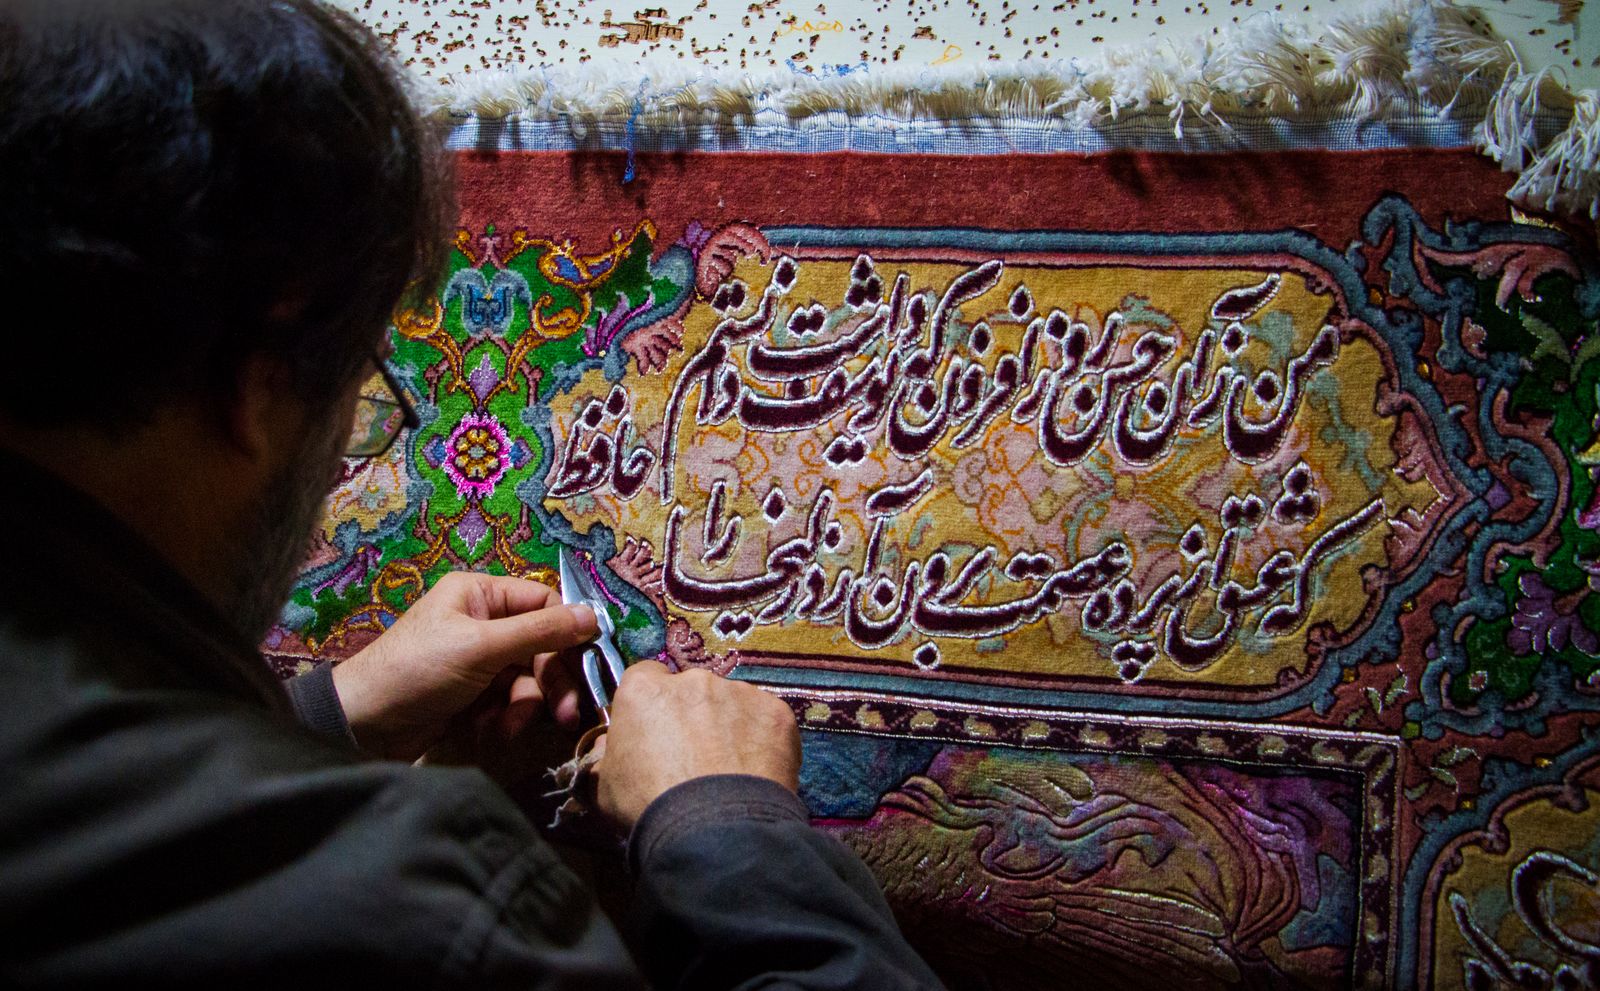 من از آن حسن روزافزون که یوسف داشت دانستم
که عشق از پرده عصمت برون آرد زلیخا را
حافظ